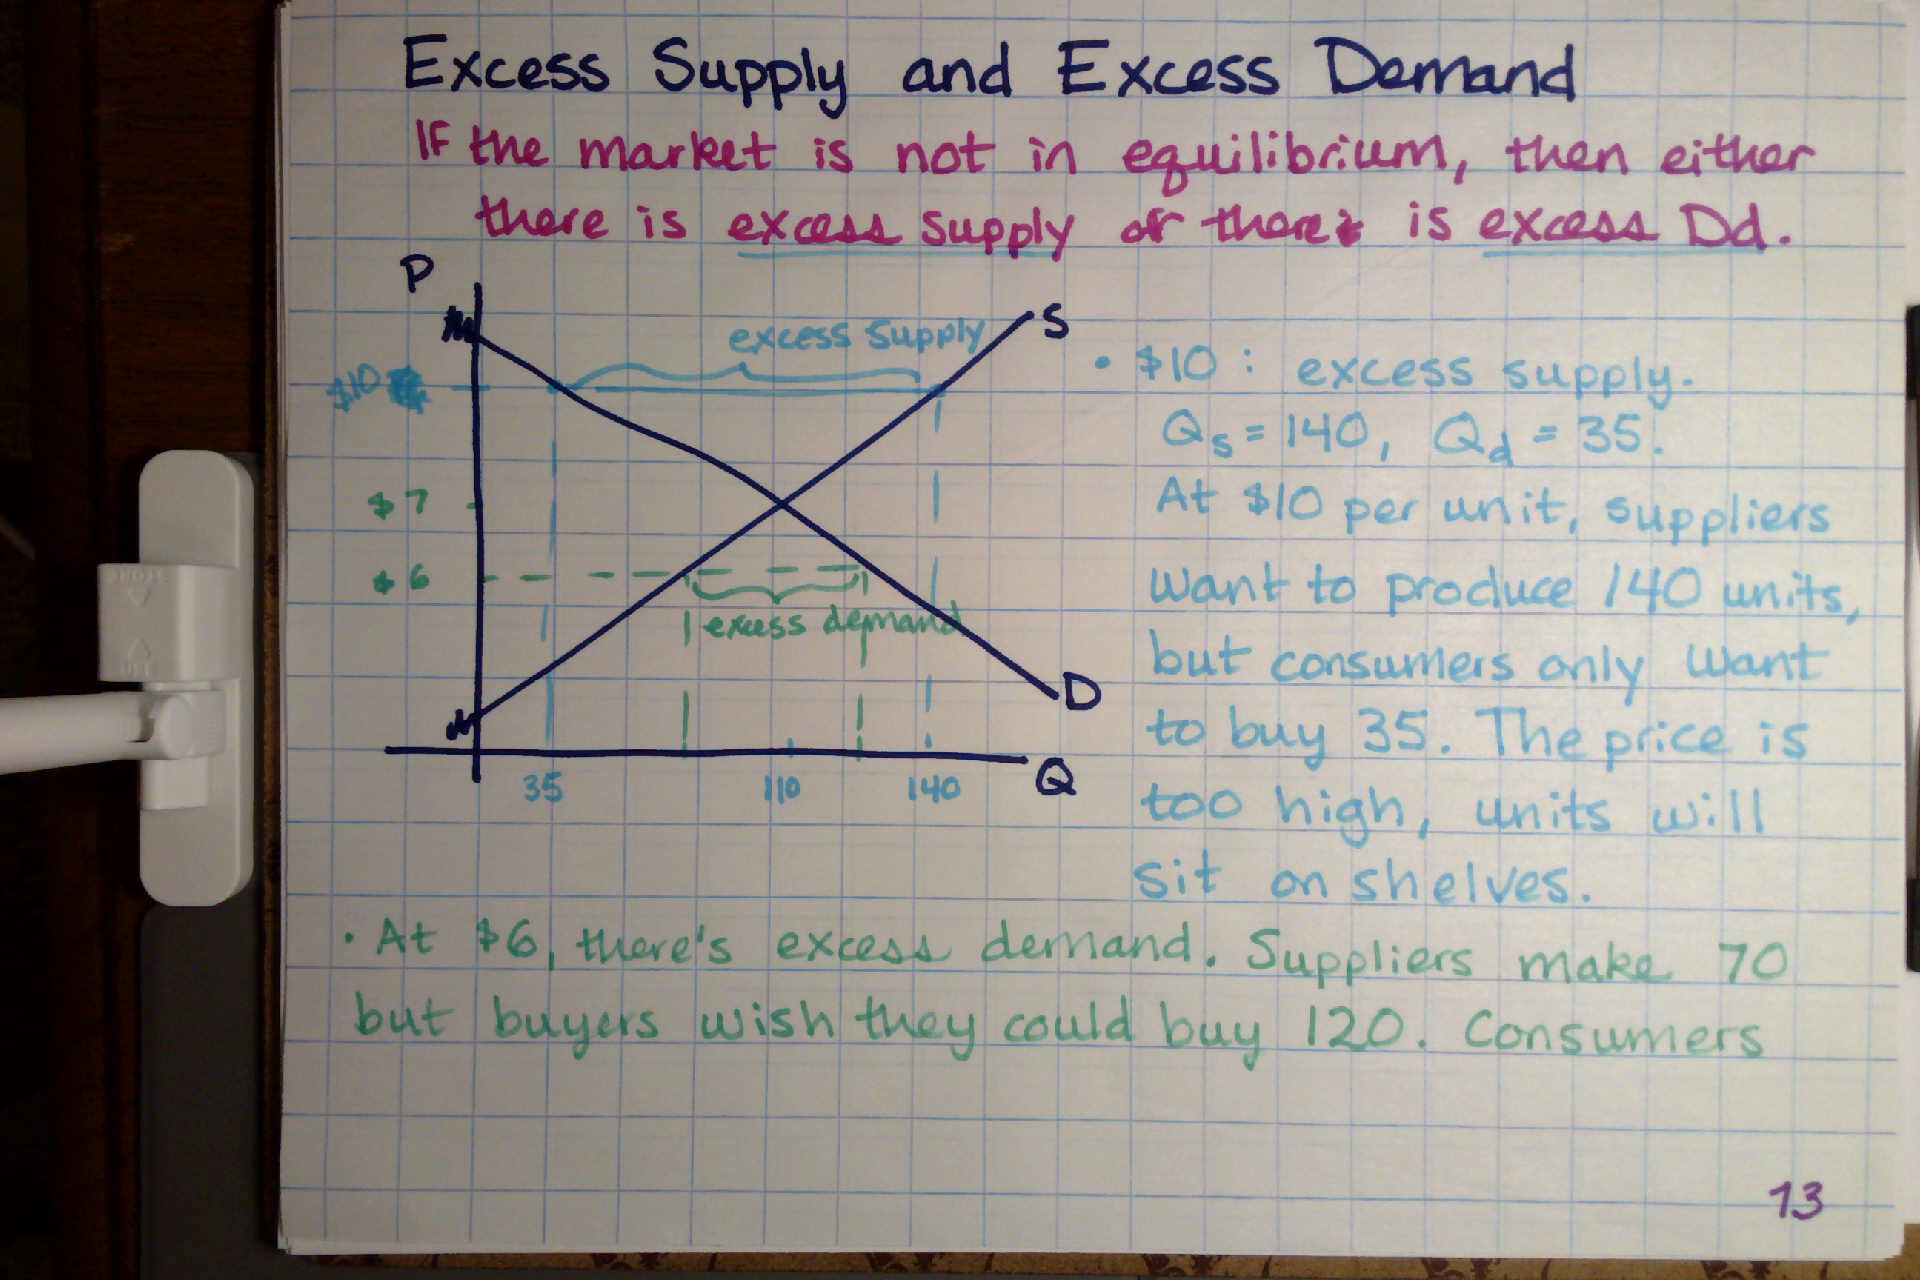 Excess Supply and Excess Demand
If the market is not in equilibrium, then either
there is excess supply or there is excess Dd.
P
S
excess supply
$10
$7
$6
excess demand
D
Q
35
110
140
• $10 : excess supply.
Qs = 140, Qd = 35.
At $10 per unit, suppliers
want to produce 140 units,
but consumers only want
to buy 35. The price is
too high, units will
sit on shelves.
• At $6, there's excess demand. Suppliers make 70
but buyers wish they could buy 120. Consumers
13